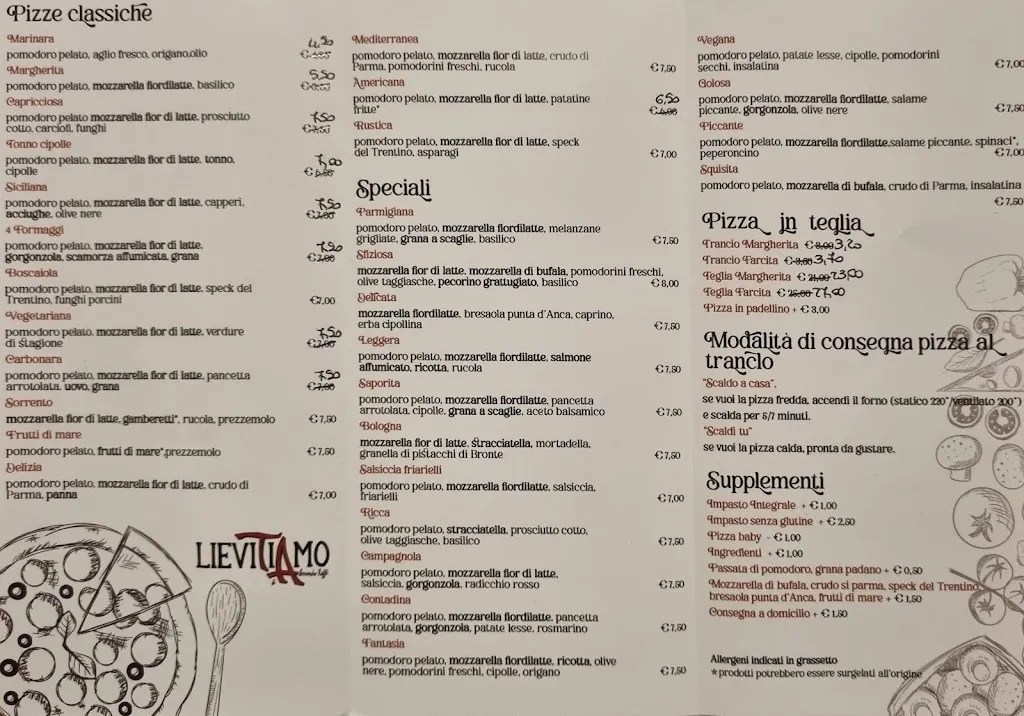 Pizze classiche
Marinara
4,50
pomodoro pelato, aglio fresco, origano,olio
Margherita
5,50
pomodoro pelato, mozzarella fiordilatte, basilico
Capricciosa
pomodoro pelato mozzarella fior di latte, prosciutto
7,50
cotto, carciofi, funghi
Tonno cipolle
pomodoro pelato, mozzarella fior di latte, tonno,
7,00
cipolle
Siciliana
pomodoro pelato, mozzarella fior di latte, capperi,
7,50
acciughe, olive nere €7,00
4 Formaggi
pomodoro pelato, mozzarella fior di latte,
7,50
gorgonzola, scamorza affumicata, grana €7,00
Boscaiola
pomodoro pelato, mozzarella fior di latte, speck del
Trentino, funghi porcini €7,00
Vegetariana
pomodoro pelato, mozzarella fior di latte, verdure
7,50
di stagione €7,00
Carbonara
pomodoro pelato, mozzarella fior di latte, pancetta
7,50
arrotolata, uovo, grana €7,00
Sorrento
mozzarella fior di latte, gamberetti*, rucola, prezzemolo €7,50
Frutti di mare
pomodoro pelato, frutti di mare*,prezzemolo €7,50
Delizia
pomodoro pelato, mozzarella fior di latte, crudo di
Parma, panna €7,00
LIEVITIAMO
Mediterranea
pomodoro pelato, mozzarella fior di latte, crudo di
Parma, pomodorini freschi, rucola €7,50
Americana
pomodoro pelato, mozzarella fior di latte, patatine
6,50
fritte* €6,00
Rustica
pomodoro pelato, mozzarella fior di latte, speck
del Trentino, asparagi €7,00
Speciali
Parmigiana
pomodoro pelato, mozzarella fiordilatte, melanzane
grigliate, grana a scaglie, basilico €7,50
Sfiziosa
mozzarella fior di latte, mozzarella di bufala, pomodorini freschi,
olive taggiasche, pecorino grattugiato, basilico €8,00
Delicata
mozzarella fiordilatte, bresaola punta d'Anca, caprino,
erba cipollina €7,50
Leggera
pomodoro pelato, mozzarella fiordilatte, salmone
affumicato, ricotta, rucola €7,50
Saporita
pomodoro pelato, mozzarella fiordilatte, pancetta
arrotolata, cipolle, grana a scaglie, aceto balsamico €7,50
Bologna
mozzarella fior di latte, stracciatella, mortadella,
granella di pistacchi di Bronte €7,50
Salsiccia friarielli
pomodoro pelato, mozzarella fiordilatte, salsiccia,
friarielli €7,00
Ricca
pomodoro pelato, stracciatella, prosciutto cotto,
olive taggiasche, basilico €7,50
Campagnola
pomodoro pelato, mozzarella fior di latte,
salsiccia, gorgonzola, radicchio rosso €7,50
Contadina
pomodoro pelato, mozzarella fiordilatte, pancetta
arrotolata, gorgonzola, patate lesse, rosmarino €7,50
Fantasia
pomodoro pelato, mozzarella fiordilatte, ricotta, olive
nere, pomodorini freschi, cipolle, origano €7,50
Vegana
pomodoro pelato, patate lesse, cipolle, pomodorini
secchi, insalatina €7,00
Golosa
pomodoro pelato, mozzarella fiordilatte, salame
piccante, gorgonzola, olive nere €7,50
Piccante
pomodoro pelato, mozzarella fiordilatte,salame piccante, spinaci*,
peperoncino €7,00
Squisita
pomodoro pelato, mozzarella di bufala, crudo di Parma, insalatina
€7,50
Pizza in teglia
Trancio Margherita €3,00 3,20
Trancio Farcita €3,50 3,70
Teglia Margherita €21,00 23,00
Teglia Farcita €25,00 27,00
Pizza in padellino + €3,00
Modalità di consegna pizza al
trancio
"Scaldo a casa",
se vuoi la pizza fredda, accendi il forno (statico 220°/ventilato 200°)
e scalda per 5/7 minuti.
"Scaldi tu"
se vuoi la pizza calda, pronta da gustare.
Supplementi
Impasto Integrale + €1,00
Impasto senza glutine + €2,50
Pizza baby - €1,00
Ingredienti + €1,00
Passata di pomodoro, grana padano + €0,50
Mozzarella di bufala, crudo si parma, speck del Trentino,
bresaola punta d'Anca, frutti di mare + €1,50
Consegna a domicilio + €1,50
Allergeni indicati in grassetto
*prodotti potrebbero essere surgelati all'origine